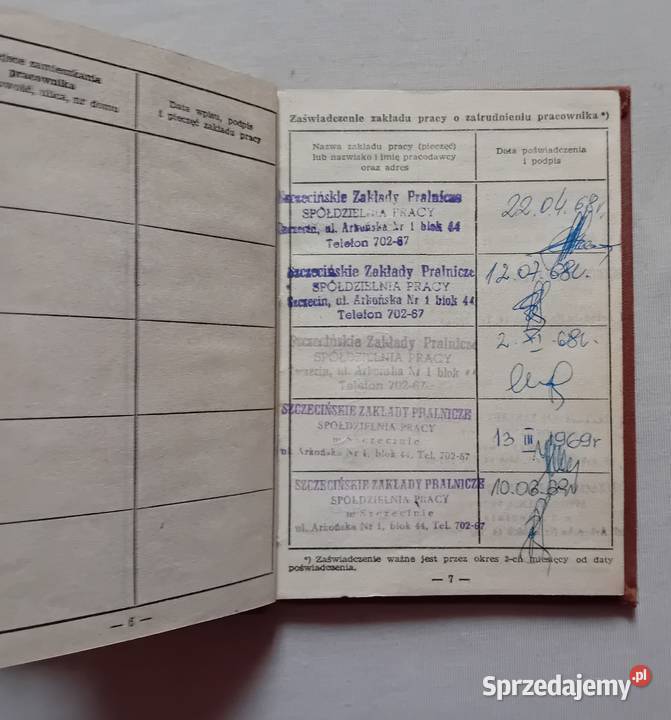 zamieszkania
pracownika
ulica, nr domu
Data wpisu, podpis
i pieczęć zakładu pracy
— 6 —
Zaświadczenie zakładu pracy o zatrudnieniu pracownika*)
Nazwa zakładu pracy (pieczęć)
lub nazwisko i imię pracodawcy
oraz adres
Data poświadczenia
i podpis
Szczecińskie Zakłady Pralnicze
SPÓŁDZIELNIA PRACY
Szczecin, ul. Arkońska Nr 1 blok 44
Telefon 702-67
22.04.68r.
Szczecińskie Zakłady Pralnicze
SPÓŁDZIELNIA PRACY
Szczecin, ul. Arkońska Nr 1 blok 44
Telefon 702-67
12.07.68r.
Szczecińskie Zakłady Pralnicze
SPÓŁDZIELNIA PRACY
Szczecin, ul. Arkońska Nr 1 blok 44
Telefon 702-67
2.XI.68r.
SZCZECIŃSKIE ZAKŁADY PRALNICZE
SPÓŁDZIELNIA PRACY
w Szczecinie
ul. Arkońska Nr 1, blok 44, Tel. 702-67
13 III 1969r
SZCZECIŃSKIE ZAKŁADY PRALNICZE
SPÓŁDZIELNIA PRACY
w Szczecinie
ul. Arkońska Nr 1, blok 44, Tel. 702-67
*) Zaświadczenie ważne jest przez okres 3-ch miesięcy od daty
poświadczenia.
— 7 —
Sprzedajemy.pl